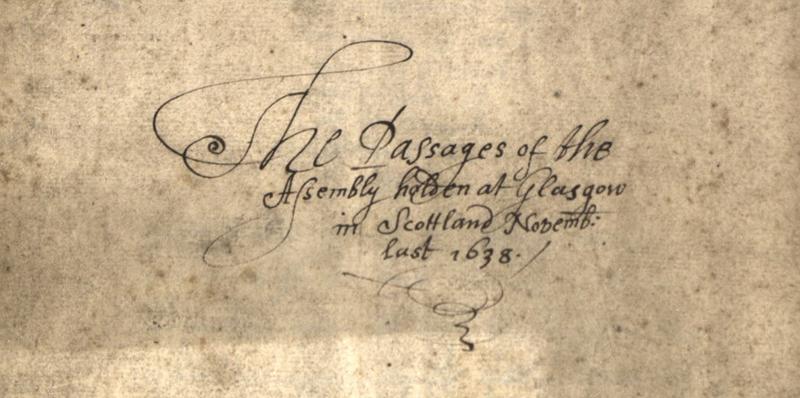 The Passages of the
Assembly holden at Glasgow
in Scottland Novemb:
last 1638.